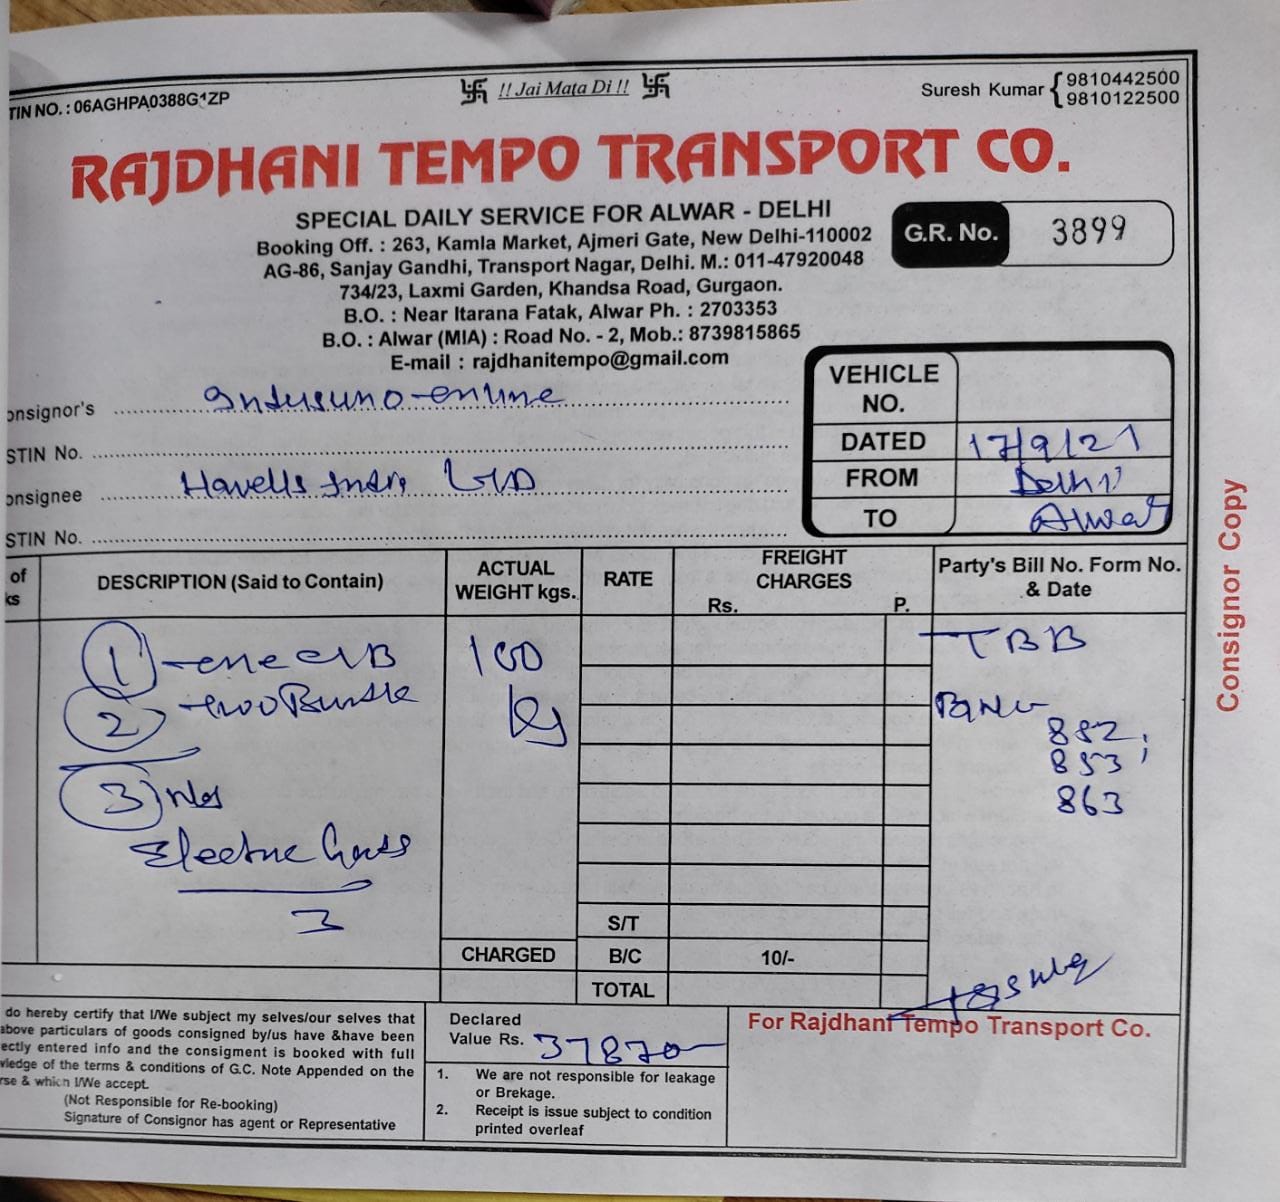 TIN NO. : 06AGHPA0388G1ZP
!! Jai Mata Di !!
Suresh Kumar { 9810442500
9810122500
RAJDHANI TEMPO TRANSPORT CO.
SPECIAL DAILY SERVICE FOR ALWAR - DELHI
Booking Off. : 263, Kamla Market, Ajmeri Gate, New Delhi-110002
AG-86, Sanjay Gandhi, Transport Nagar, Delhi. M.: 011-47920048
734/23, Laxmi Garden, Khandsa Road, Gurgaon.
B.O. : Near Itarana Fatak, Alwar Ph. : 2703353
B.O. : Alwar (MIA) : Road No. - 2, Mob.: 8739815865
E-mail : rajdhanitempo@gmail.com
G.R. No. 3899
VEHICLE NO.
DATED 17/9/21
FROM Delhi
TO Alwar
onsignor's
STIN No.
onsignee Havells India LTD
STIN No.
of
ks
DESCRIPTION (Said to Contain)
ACTUAL WEIGHT kgs.
RATE
FREIGHT CHARGES
Rs. P.
Party's Bill No. Form No. & Date
1
100
TBB
2 two Bundle
Kg
882,
853,
3 Nos
863
Electric
3
S/T
CHARGED B/C 10/-
TOTAL
do hereby certify that I/We subject my selves/our selves that
above particulars of goods consigned by/us have &have been
ectly entered info and the consigment is booked with full
wledge of the terms & conditions of G.C. Note Appended on the
rse & which I/We accept.
(Not Responsible for Re-booking)
Signature of Consignor has agent or Representative
Declared
Value Rs. 37870
1. We are not responsible for leakage
or Brekage.
2. Receipt is issue subject to condition
printed overleaf
For Rajdhani Tempo Transport Co.
Consignor Copy